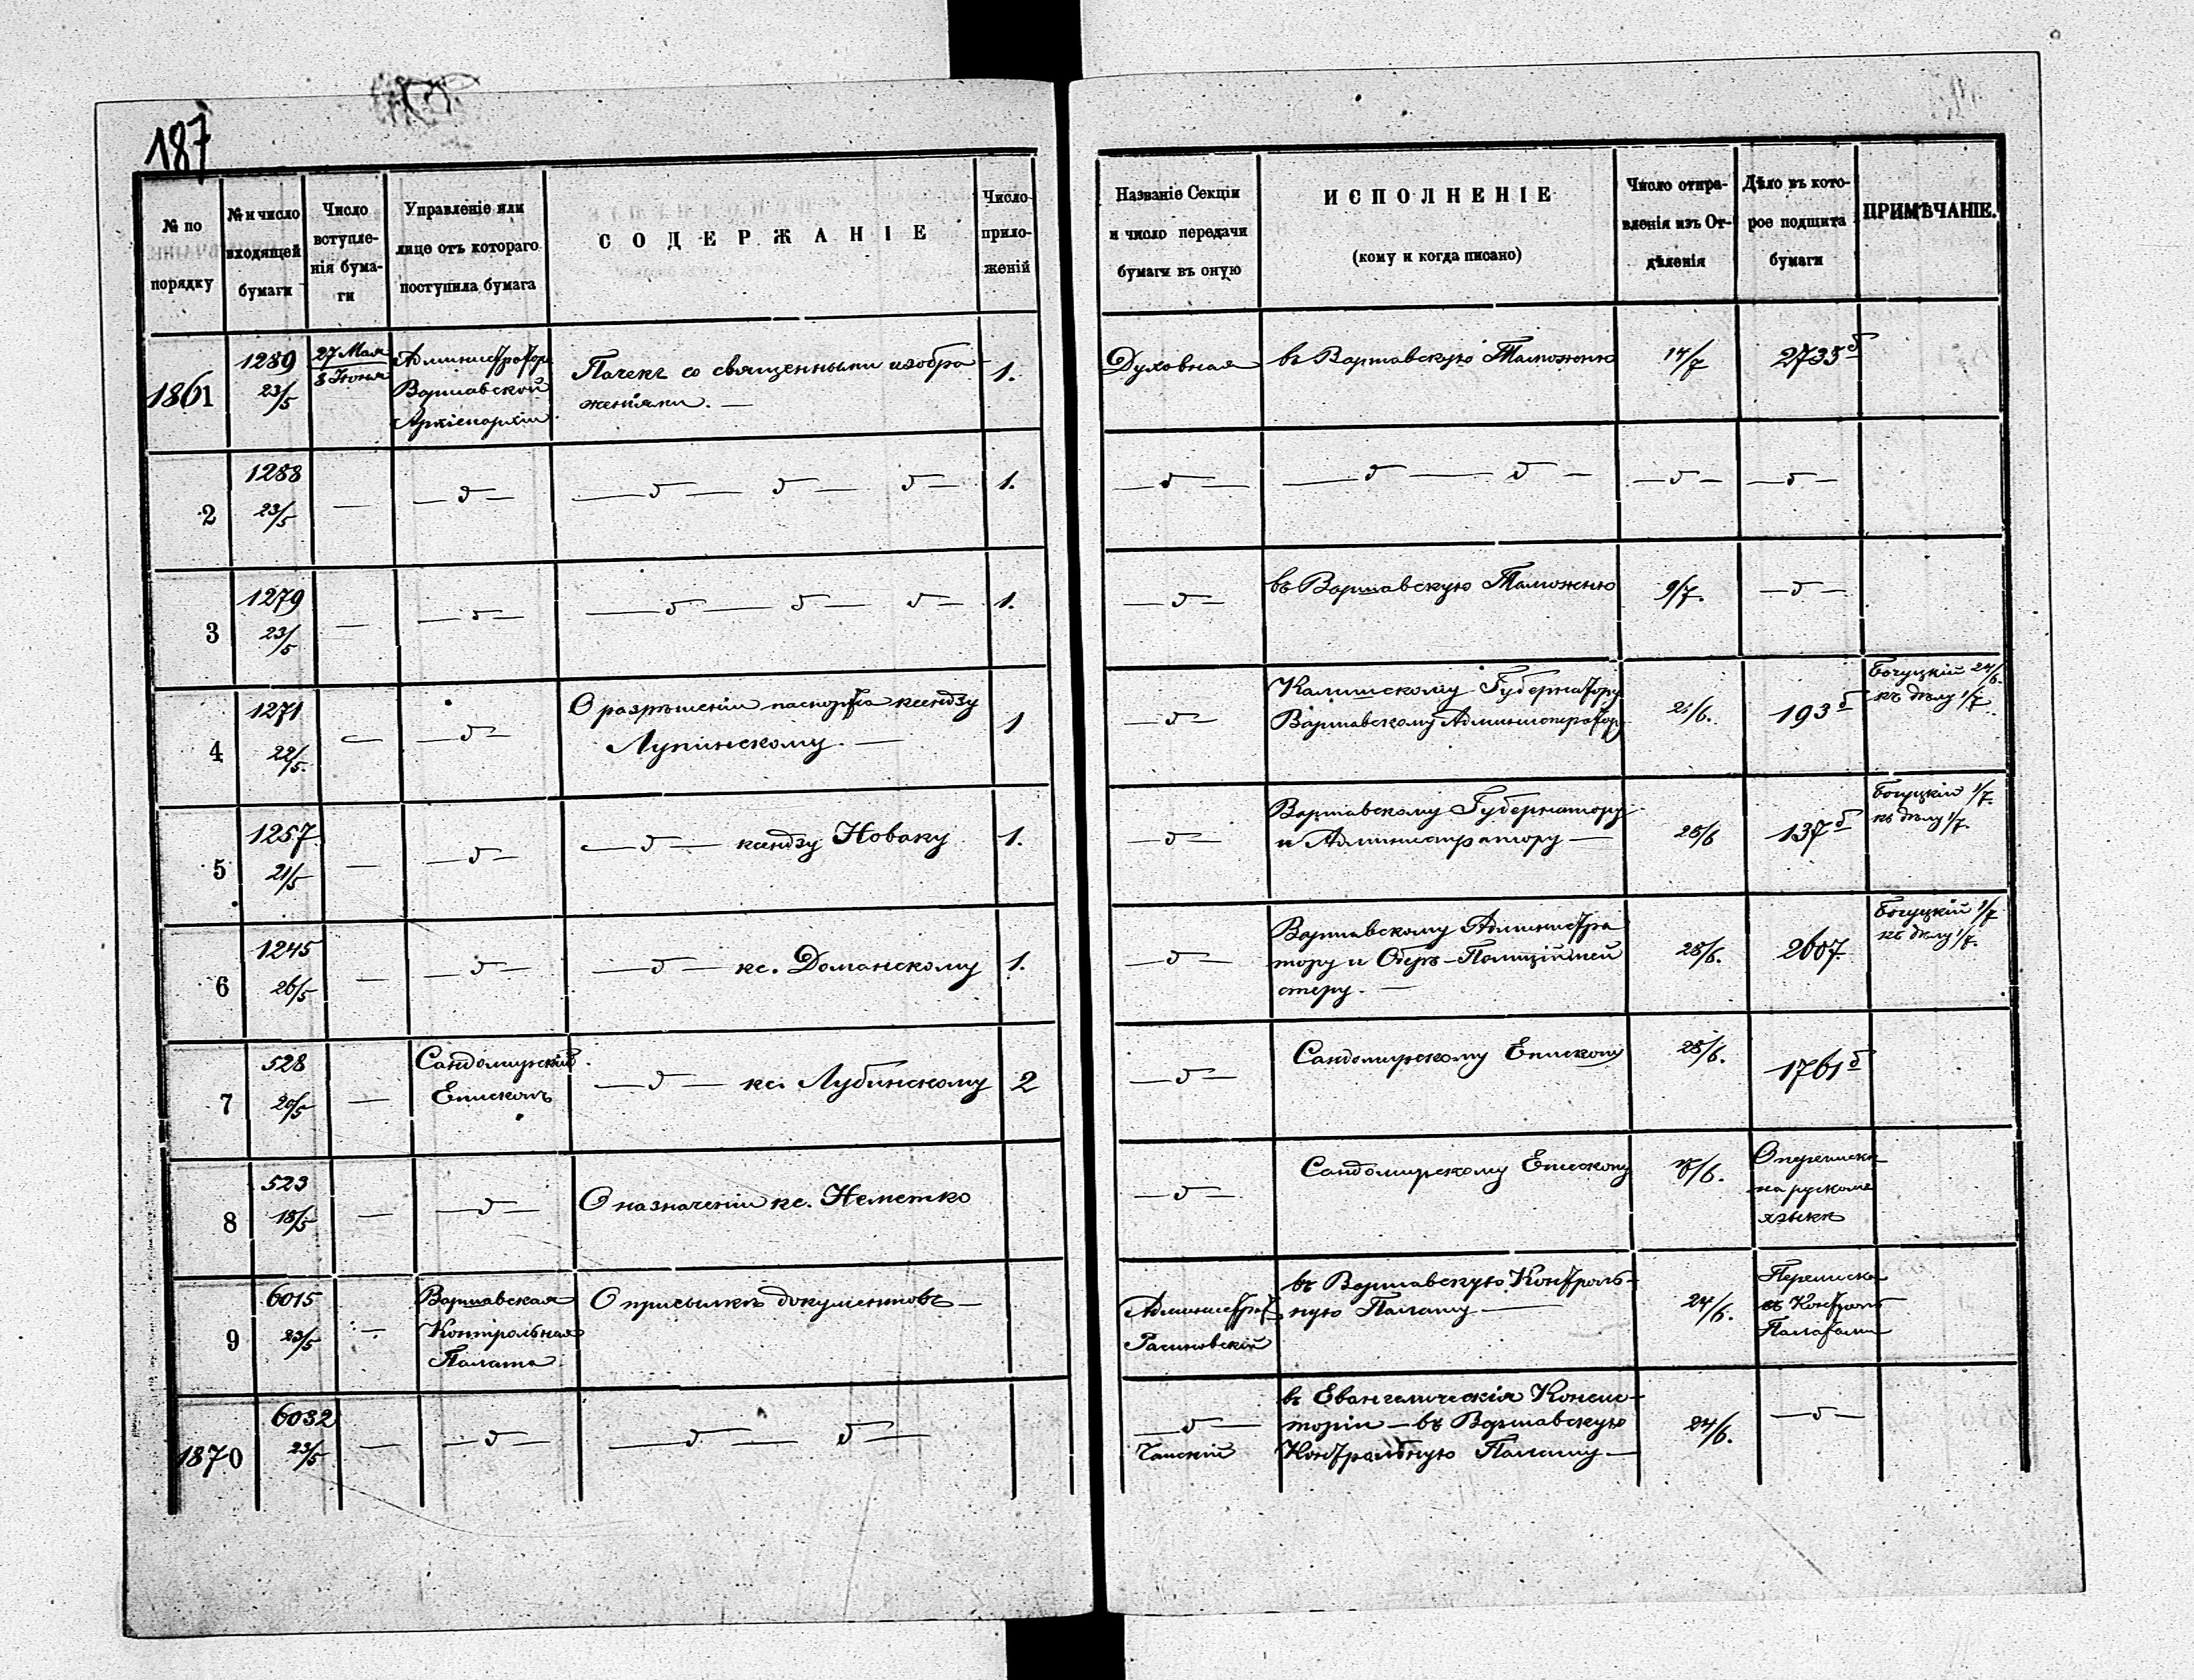 187
№ по порядку
№ и число входящей бумаги
Число вступле-
нія бума-
ги
Управленіе или
лице отъ котораго
поступила бумага
СОДЕРЖАНІЕ
Число
прило-
женій
Названіе Секціи
и число передачи
бумаги въ оную
ИСПОЛНЕНІЕ
(кому и когда писано)
Число отпра-
вленія изъ От-
дѣленія
Дѣло въ кото-
рое подшита
бумаги
ПРИМѢЧАНІЕ.
1861
1289
23/5
27 Мая
8 Іюня
Администраторъ
Варшавской
Архіепархіи
Пачекъ со священными изобра-
женіями. —
1.
Духовная
въ Варшавскую Таможню
14/7
2735 б
2
1288
23/5
—
— д —
— д — д — д —
1.
— д —
— д — д —
— д —
— д —
3
1279
23/5
—
— д —
— д — д — д —
1.
— д —
въ Варшавскую Таможню
9/7.
— д —
4
1271
22/5.
—
— д —
О разрѣшеніи паспорта ксендзу
Лупинскому. —
1
— д —
Калишскому Губернатору
Варшавскому Администратору
/6.
193 б
Богуцкій 24/6.
къ дѣлу 1/7
5
1257
21/5
—
— д —
— д — ксендзу Новаку
1.
— д —
Варшавскому Губернатору
и Администратору —
28/6
137 б
Богуцкій 1/7.
къ дѣлу 1/7.
6
1245
26/5
—
— д —
— д — кс. Доманскому
1.
— д —
Варшавскому Администра
тору и Оберъ-Полиціймей
стеру. —
28/6.
2607
Богуцкій 1/7
къ дѣлу 1/7.
7
528
20/5
—
Сандомирскій
Епископъ
— д — кс. Лубинскому
2
— д —
Сандомирскому Епископу
28/6.
1761 б
8
523
18/5
—
— д —
О назначеніи кс. Неметко
— д —
Сандомирскому Епископу
/6.
О перепискѣ
на рускомъ
языкѣ
9
6015
23/5
—
Варшавская
Контрольная
Палата
О присылкѣ документовъ —
Администрат.
въ Варшавскую Контроль-
ную Палату —
24/6.
Переписка
съ Контрол
Палатами
1870
6032
23/5
—
— д —
— д — д —
— д —
въ Евангелическія Консис-
торіи — въ Варшавскую
Контрольную Палату —
24/6.
— д —